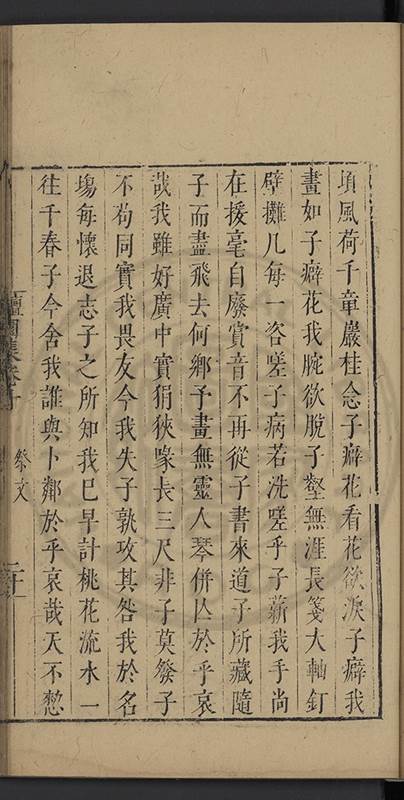 頃風荷千章巖桂念子癖花看花欲淚子癖我
畫如子癖花我腕欲脫子壑無涯長箋大軸釘
壁攤几每一咨嗟子病若洗嗟乎子蘄我手尚
在援毫自廢賞音不再從子書來道子所藏隨
子而盡飛去何鄉予畫無靈人琴併亾於乎哀
哉我雖好廣中實狷狹喙長三尺非子莫發子
不苟同實我畏友今我失子孰攻其咎我於名
塲每懷退志子之所知我巳早計桃花流水一
往千春子今舍我誰與卜鄰於乎哀哉天不憖
園集卷十
祭文